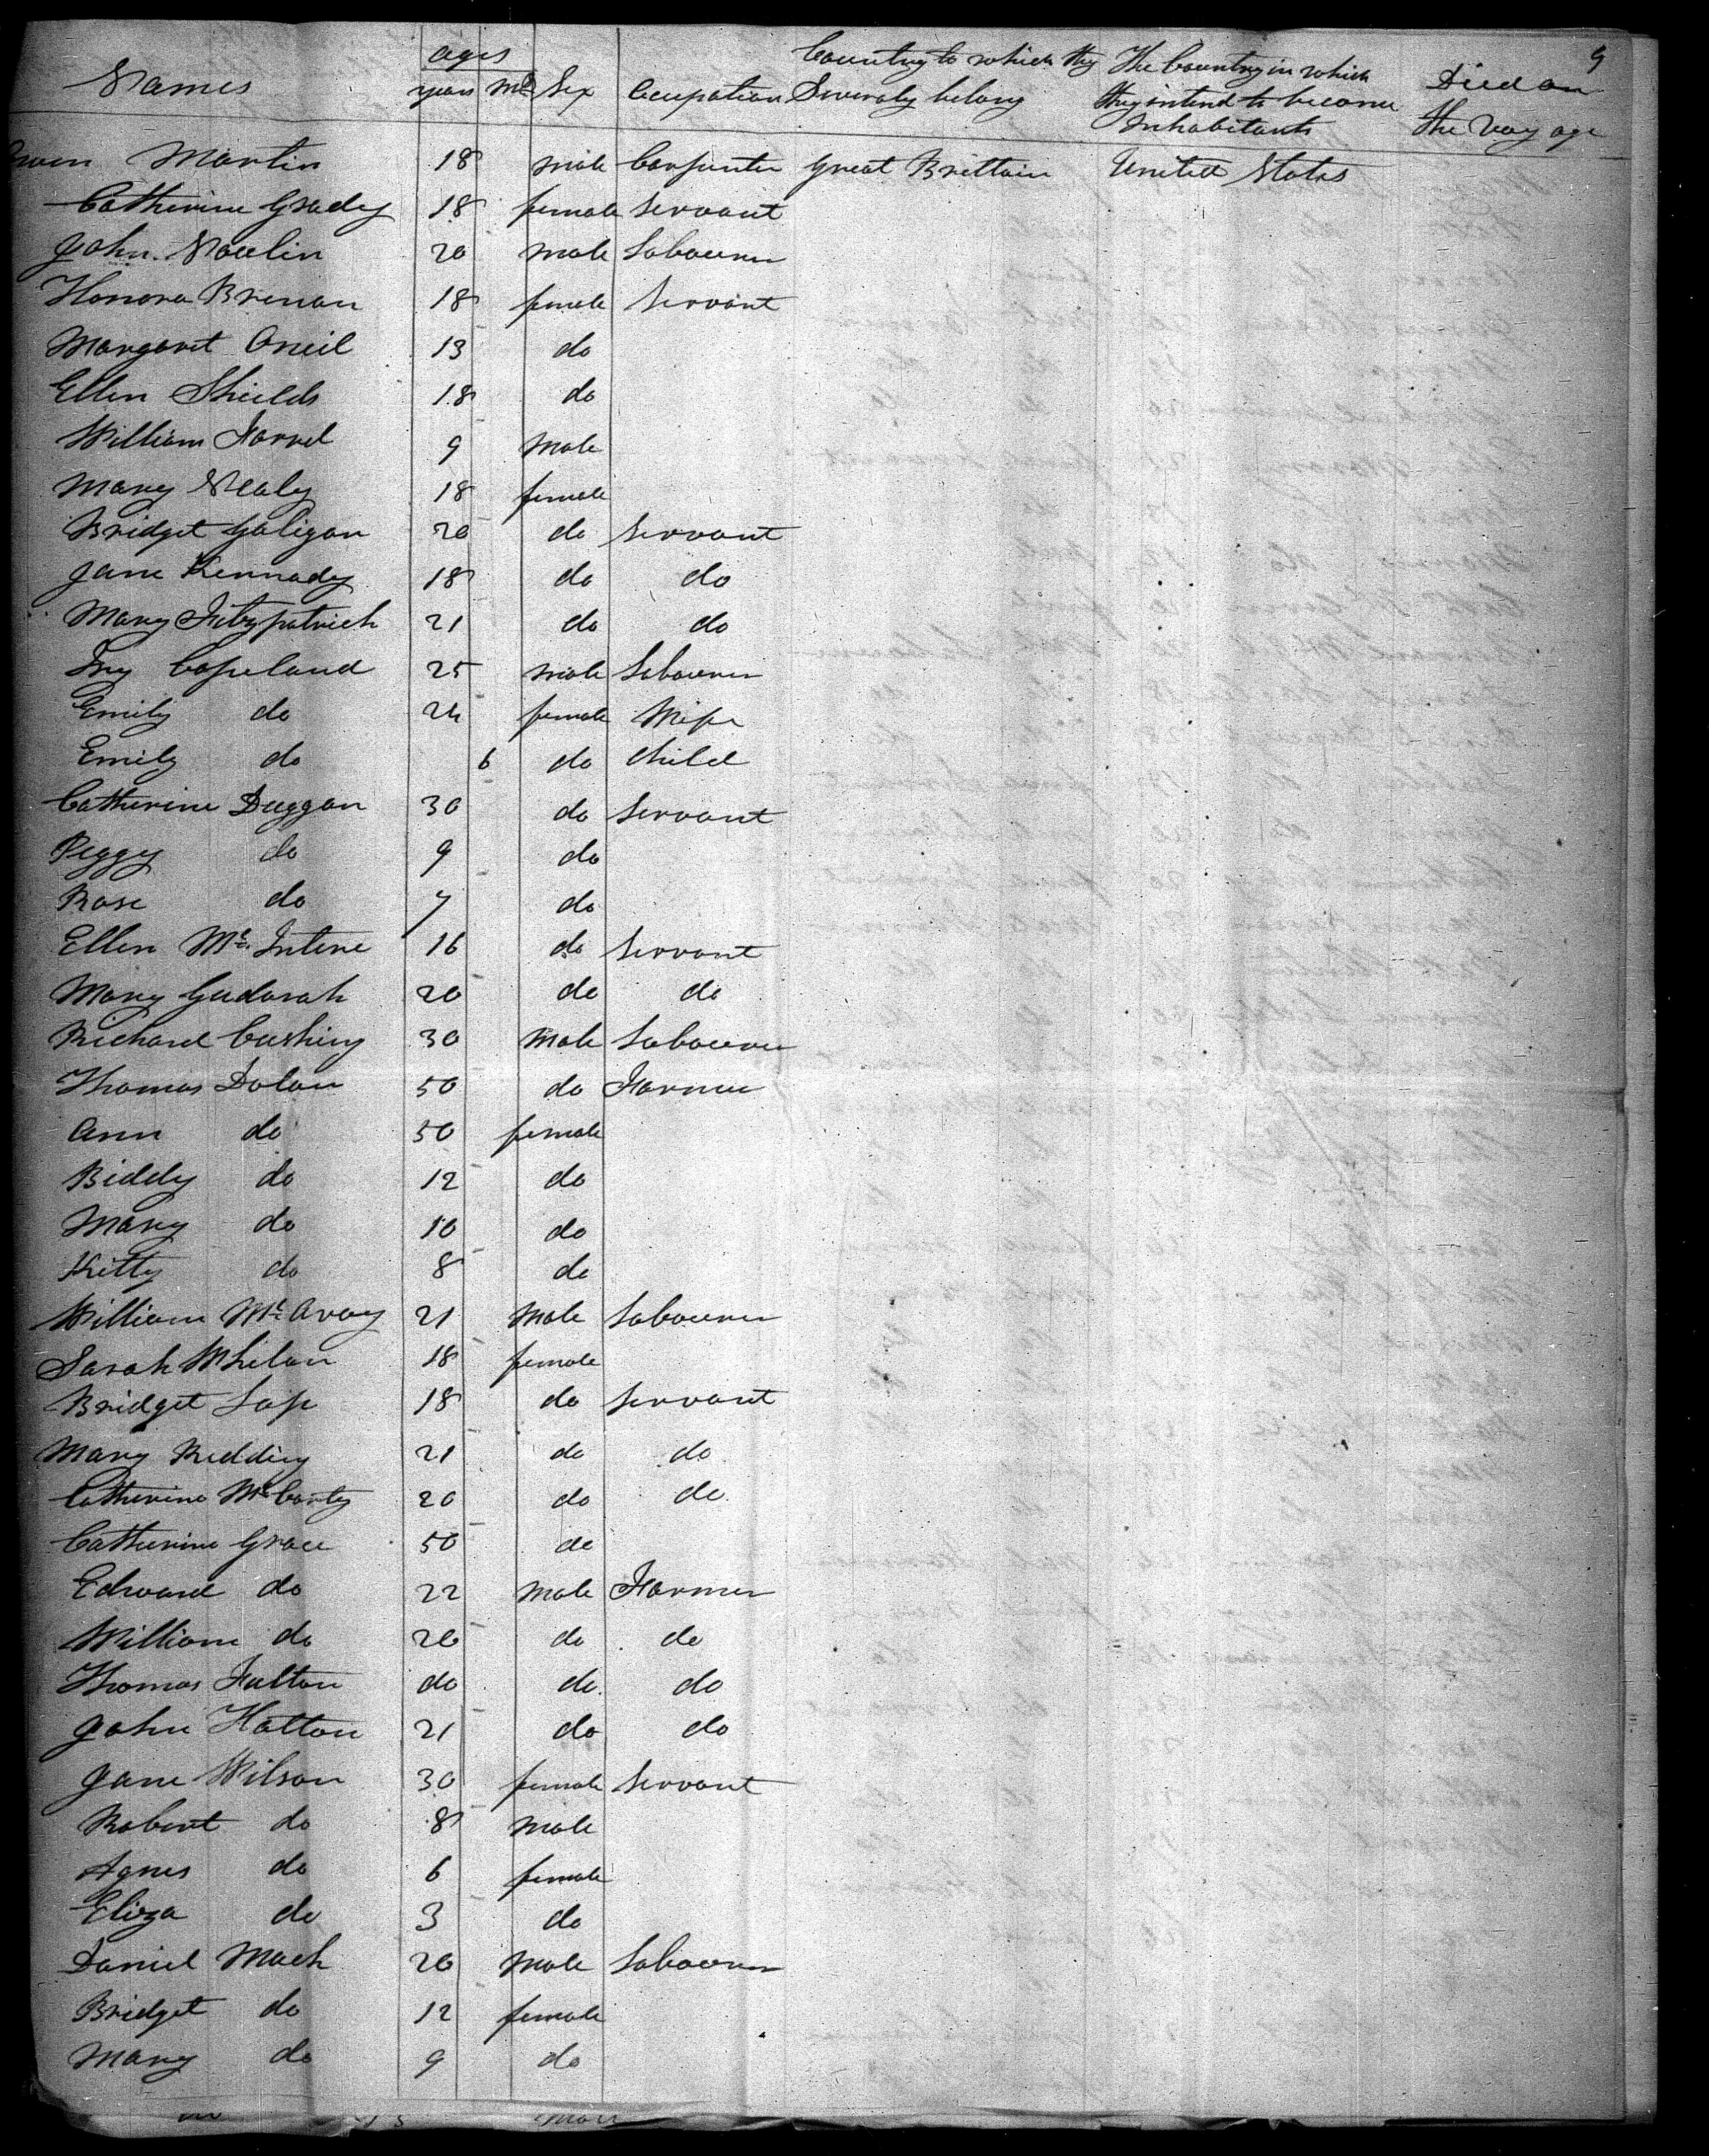 9
Names ages years Ms Sex Occupation Country to which they Severaly belong The Country in which they intend to become Inhabitants Died on the Voyage
Martin 18 male Carpenter Great Brittain United States
Catherine Grady 18 female Servant
John Nowlin 20 male Labourer
Honora Brenan 18 female Servant
Margaret Oneil 13 do
Ellen Shields 18 do
William Farrel 9 Male
Mary Nealy 18 female
Bridget Galigan 20 do Servant
Jane Kennady 18 do do
Mary Fitzpatrick 21 do do
Copeland 25 male Labourer
Emily do 24 female Wife
Emily do 6 do Child
Catherine Duggan 30 do Servant
Peggy do 9 do
Rose do 7 do
Ellen Mc Intere 16 do Servant
Mary 20 do do
Richard Cushing 30 Male Labourer
Thomas Dolan 50 do Farmer
Ann do 50 female
Biddy do 12 do
Mary do 10 do
Kitty do 8 do
William McAvoy 21 Male Labourer
Sarah Whelan 18 female
Bridget 18 do Servant
Mary Redding 21 do do
Catherine McCarty 20 do do
Catherine Grace 50 do
Edward do 22 Male Farmer
William do 20 do do
Thomas Fulton do do do
John Hatton 21 do do
Jane Wilson 30 female Servant
Robert do 8 Male
Agnes do 6 female
Eliza do 3 do
Daniel Mack 20 Male Labourer
Bridget do 12 female
Mary do 9 do